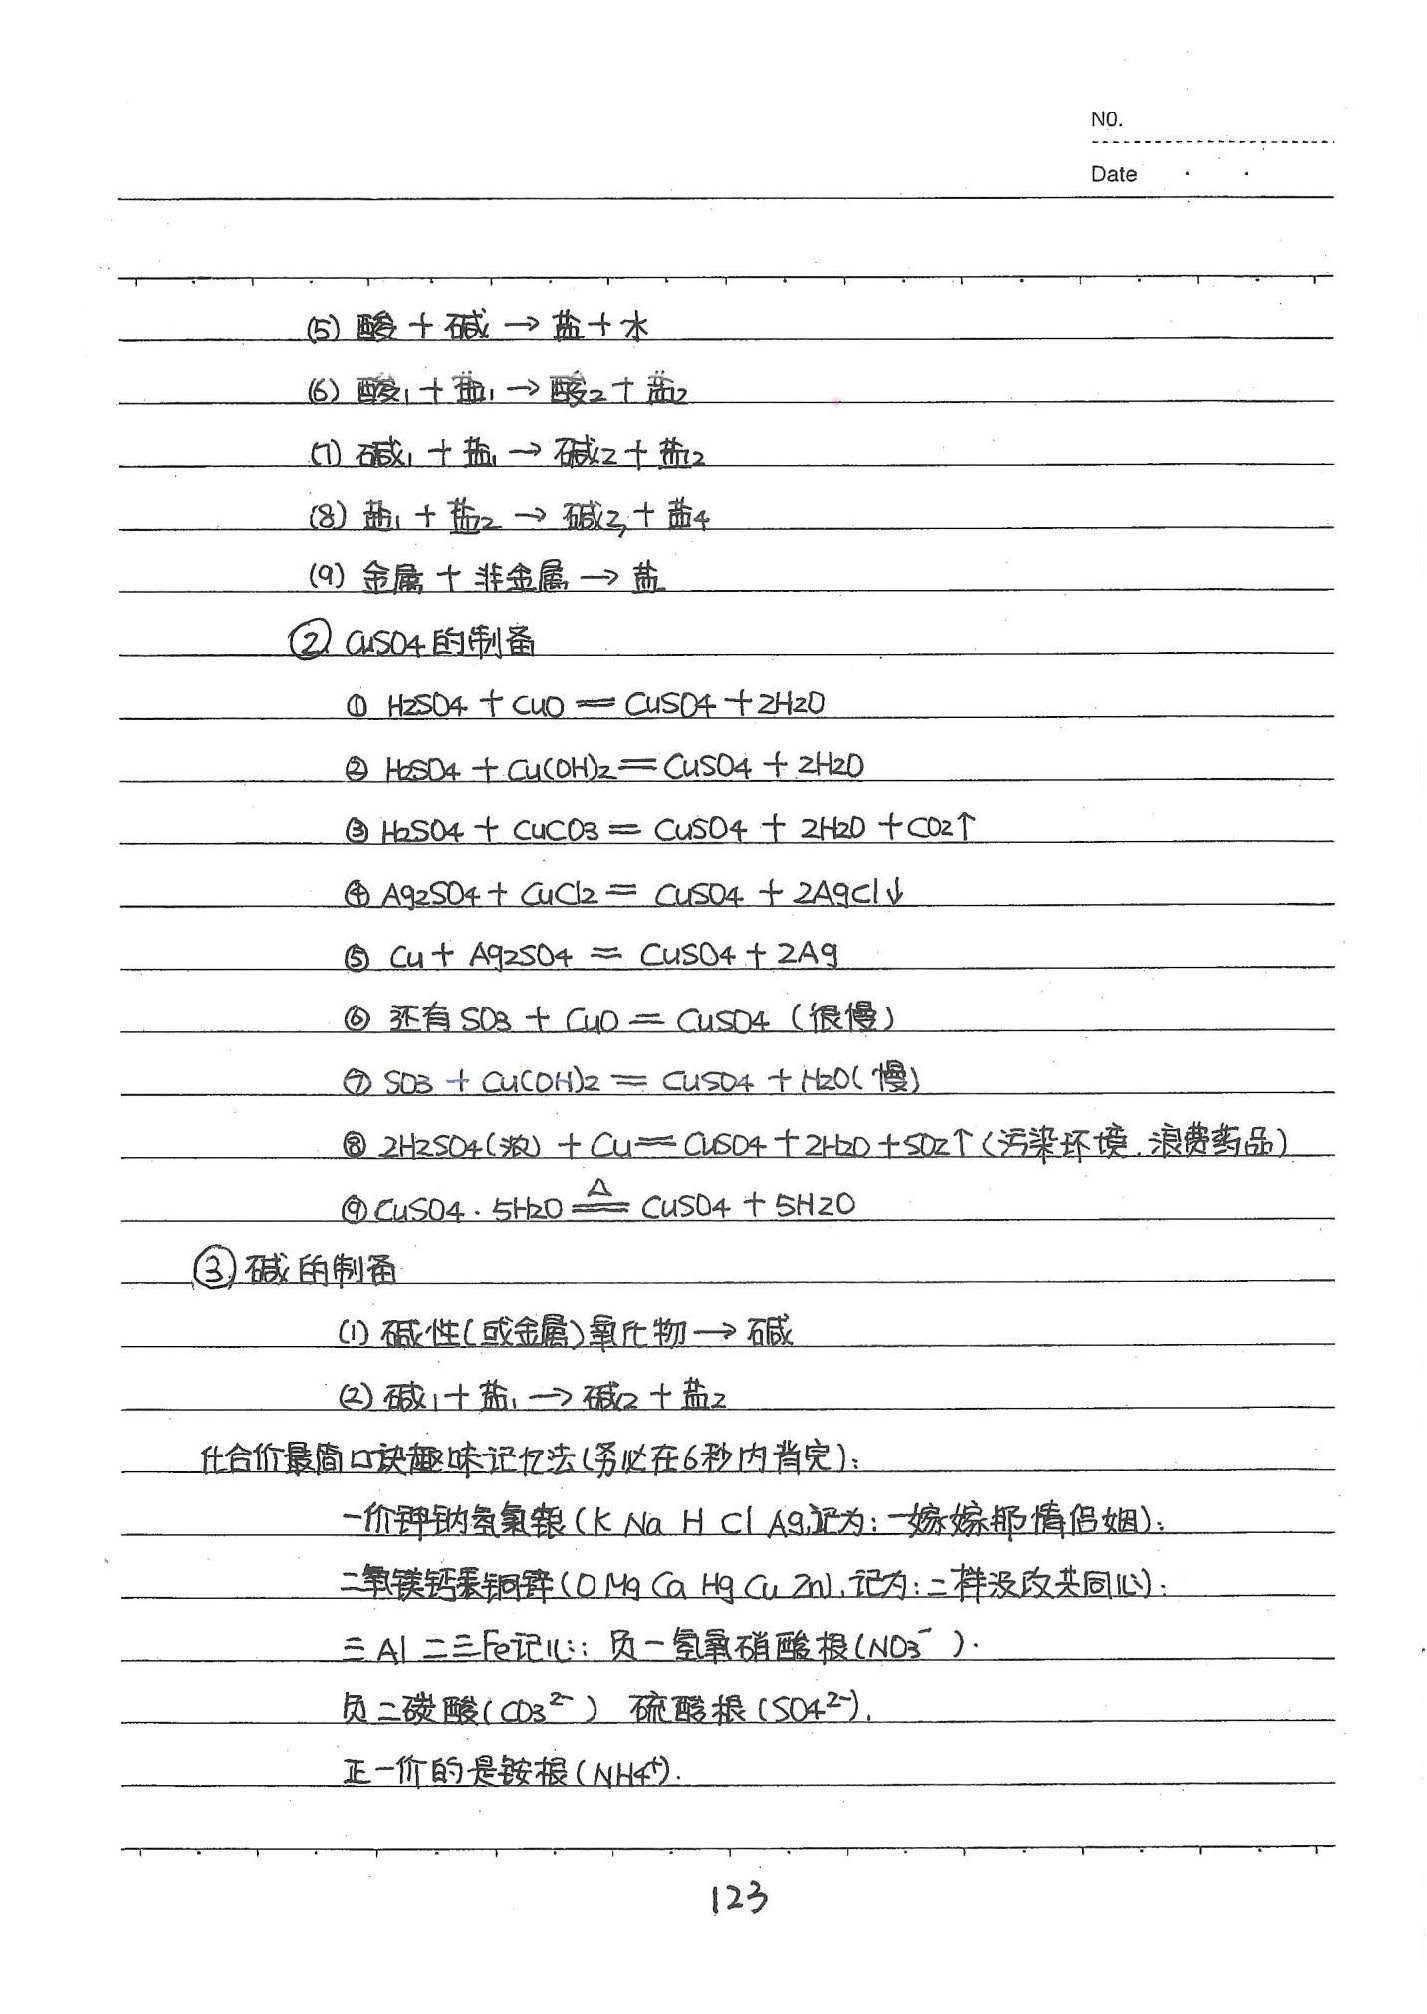 NO.
Date
(5) 酸 + 碱 → 盐 + 水
(6) 酸1 + 盐1 → 酸2 + 盐2
(7) 碱1 + 盐1 → 碱2 + 盐2
(8) 盐1 + 盐2 → 碱3 + 盐4
(9) 金属 + 非金属 → 盐
② CuSO4的制备
① H2SO4 + CuO = CuSO4 + 2H2O
② H2SO4 + Cu(OH)2 = CuSO4 + 2H2O
③ H2SO4 + CuCO3 = CuSO4 + 2H2O + CO2↑
④ Ag2SO4 + CuCl2 = CuSO4 + 2AgCl↓
⑤ Cu + Ag2SO4 = CuSO4 + 2Ag
⑥ 还有 SO3 + CuO = CuSO4 (很慢)
⑦ SO3 + Cu(OH)2 = CuSO4 + H2O(慢)
⑧ 2H2SO4(浓) + Cu = CuSO4 + 2H2O + SO2↑(污染环境.浪费药品)
⑨ CuSO4·5H2O =△= CuSO4 + 5H2O
③ 碱的制备
(1) 碱性(或金属)氧化物 → 碱
(2) 碱1 + 盐1 → 碱2 + 盐2
化合价最简口诀趣味记忆法(务必在6秒内背完):
一价钾钠氢氯银(K Na H Cl Ag,记为:一嫁嫁那情侣姻);
二氧镁钙汞铜锌(O Mg Ca Hg Cu Zn),记为:二样没改共同心);
三 Al 二三Fe记心:: 负一氢氧硝酸根(NO3⁻).
负二碳酸(CO3²⁻) 硫酸根(SO4²⁻).
正一价的是铵根(NH4⁺).
123